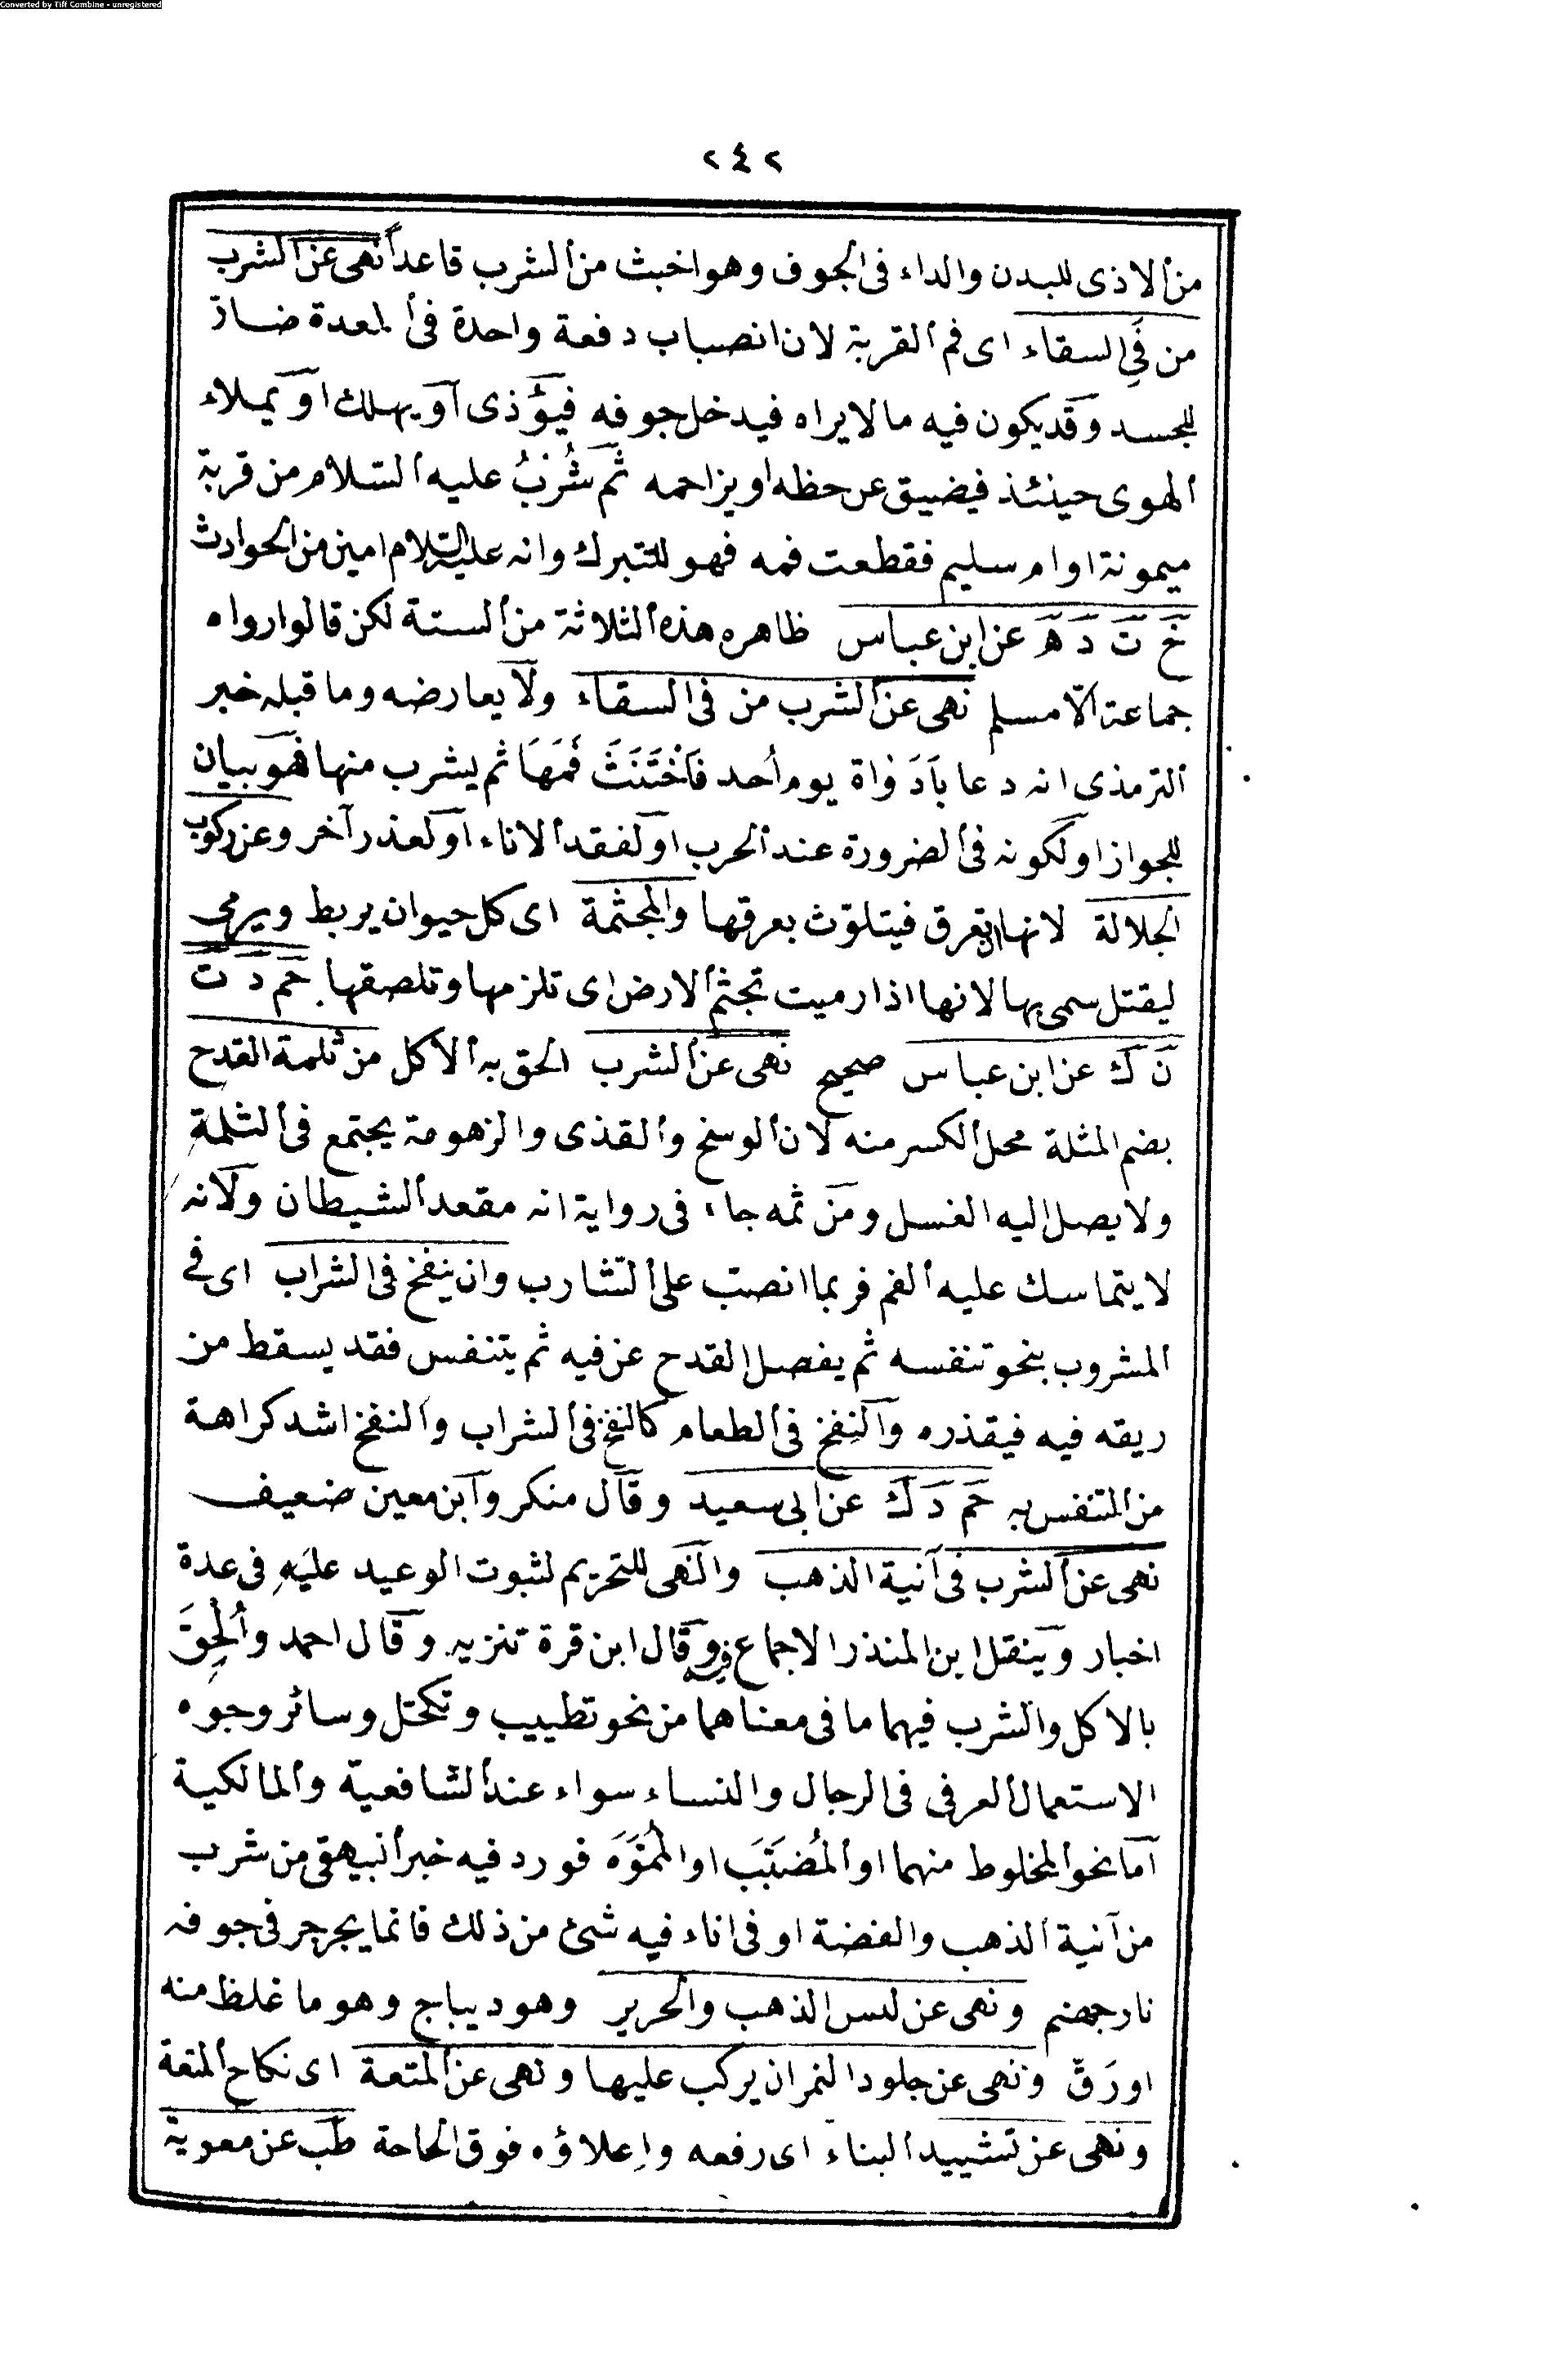 Converted by Tiff Combine - unregistered
٢٤٢
من الاذى للبدن والداء فى الجوف وهو اخبث من الشرب قاعدا نهى عن الشرب
من فى السقاء اى فم القربة لان انصباب دفعة واحدة فى المعدة ضار
للجسد وقد يكون فيه ما لا يراه فيدخل جوفه فيؤذى او يهلك او يملاء
الهوى حينئذ فيضيق عن حظه او يزاحمه ثم شُرْبُ عليه السلام من قربة
ميمونة او ام سليم فقطعت فمه فهو للتبرك وانه عليه السلام امين من الحوادث
خ ت د ه عن ابن عباس ظاهره هذه الثلاثة من الستة لكن قالوا رواه
جماعة الّا مسلم نهى عن الشرب من فى السقاء ولا يعارضه وما قبله خبر
الترمذى انه دعا بِاَدَوٰاة يوم أحد فَاخْتَنَثَ فَمَهَا ثم يشرب منها فهو بيان
للجواز او لكونه فى الضرورة عند الحرب او لفقد الاناء او لعذر آخر وعن ركوب
الجلالة لانها تعرق فيتلوّث بعرقها والمجثمة اى كل حيوان يربط ويرمى
ليقتل سمى بها لانها اذا رميت تجثم الارض اى تلزمها وتلصقها حم د ت
ن ك عن ابن عباس صحيح نهى عن الشرب الحق به الاكل من ثلمة القدح
بضم المثلة محل الكسر منه لان الوسخ والقذى والزهومة يجتمع فى الثلمة
ولا يصل اليه الغسل ومن ثمه جاء فى رواية انه مقعد الشيطان ولانه
لا يتماسك عليه الفم فربما انصب على الشارب وان ينفخ فى الشراب اى فى
المشروب بنحو تنفسه ثم يفصل القدح عن فيه ثم يتنفس فقد يسقط من
ريقه فيه فيقذره والنفخ فى الطعام كالنفخ فى الشراب والنفخ اشد كراهة
من التنفس به حم د ك عن ابى سعيد وقال منكر وابن معين ضعيف
نهى عن الشرب فى آنية الذهب والنهى للتحريم لثبوت الوعيد عليه فى عدة
اخبار وينقل ابن المنذر الاجماع فيه وقال ابن قرة تنزيه وقال احمد وأُلْحِقَ
بالاكل والشرب فيهما ما فى معناهما من نحو تطييب وتكحّل وسائر وجوه
الاستعمال العرفى فى الرجال والنساء سواء عند الشافعية والمالكية
اما نحو المخلوط منهما او المُضَبَّبَ او المُمَوَّهَ فورد فيه خبر البيهقى من شرب
من آنية الذهب والفضة او فى اناء فيه شئ من ذلك فانما يجرجر فى جوفه
نار جهنم ونهى عن لبس الذهب والحرير وهو ديباج وهو ما غلظ منه
او رَقّ ونهى عن جلود النمر ان يركب عليها ونهى عن المتعة اى نكاح المتعة
ونهى عن تشييد البناء اى رفعه واعلاؤه فوق الحاجة طب عن معوية